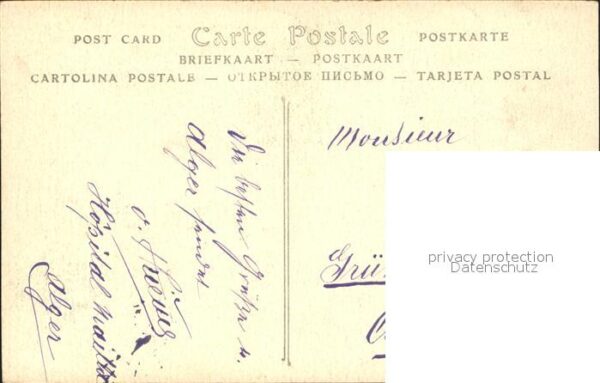 POST CARD Carte Postale POSTKARTE
BRIEFKAART — POSTKAART
CARTOLINA POSTALE — ОТКРЫТОЕ ПИСЬМО — TARJETA POSTAL
Die besten Grüße u.
Alger sendet
Hôpital Maillot
Alger
Monsieur
Grü
privacy protection
Datenschutz